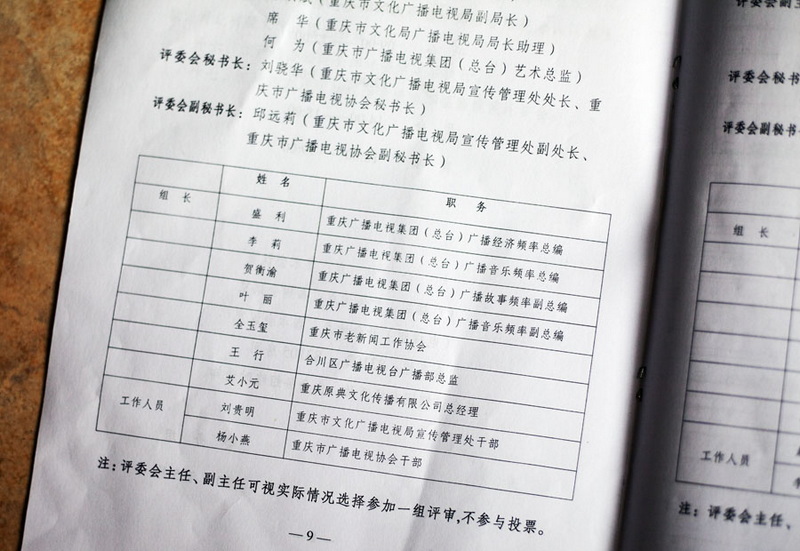 （重庆市文化广播电视局副局长）
席 华（重庆市文化局广播电视局局长助理）
何 为（重庆市广播电视集团（总台）艺术总监）
评委会秘书长：刘骁华（重庆市文化广播电视局宣传管理处处长、重
庆市广播电视协会秘书长）
评委会副秘书长：邱远莉（重庆市文化广播电视局宣传管理处副处长、
重庆市广播电视协会副秘书长）
姓 名 职 务
组 长 盛 利 重庆广播电视集团（总台）广播经济频率总编
李 莉 重庆广播电视集团（总台）广播音乐频率总编
贺衡渝 重庆广播电视集团（总台）广播故事频率副总编
叶 丽 重庆广播电视集团（总台）广播音乐频率副总编
全玉玺 重庆市老新闻工作协会
王 行 合川区广播电视台广播部总监
艾小元 重庆原典文化传播有限公司总经理
工作人员 刘贵明 重庆市文化广播电视局宣传管理处干部
杨小燕 重庆市广播电视协会干部
注：评委会主任、副主任可视实际情况选择参加一组评审，不参与投票。
—9—
评委会副主
评委会秘书
评委会副秘书
组 长
工作人员
注：评委会主任、